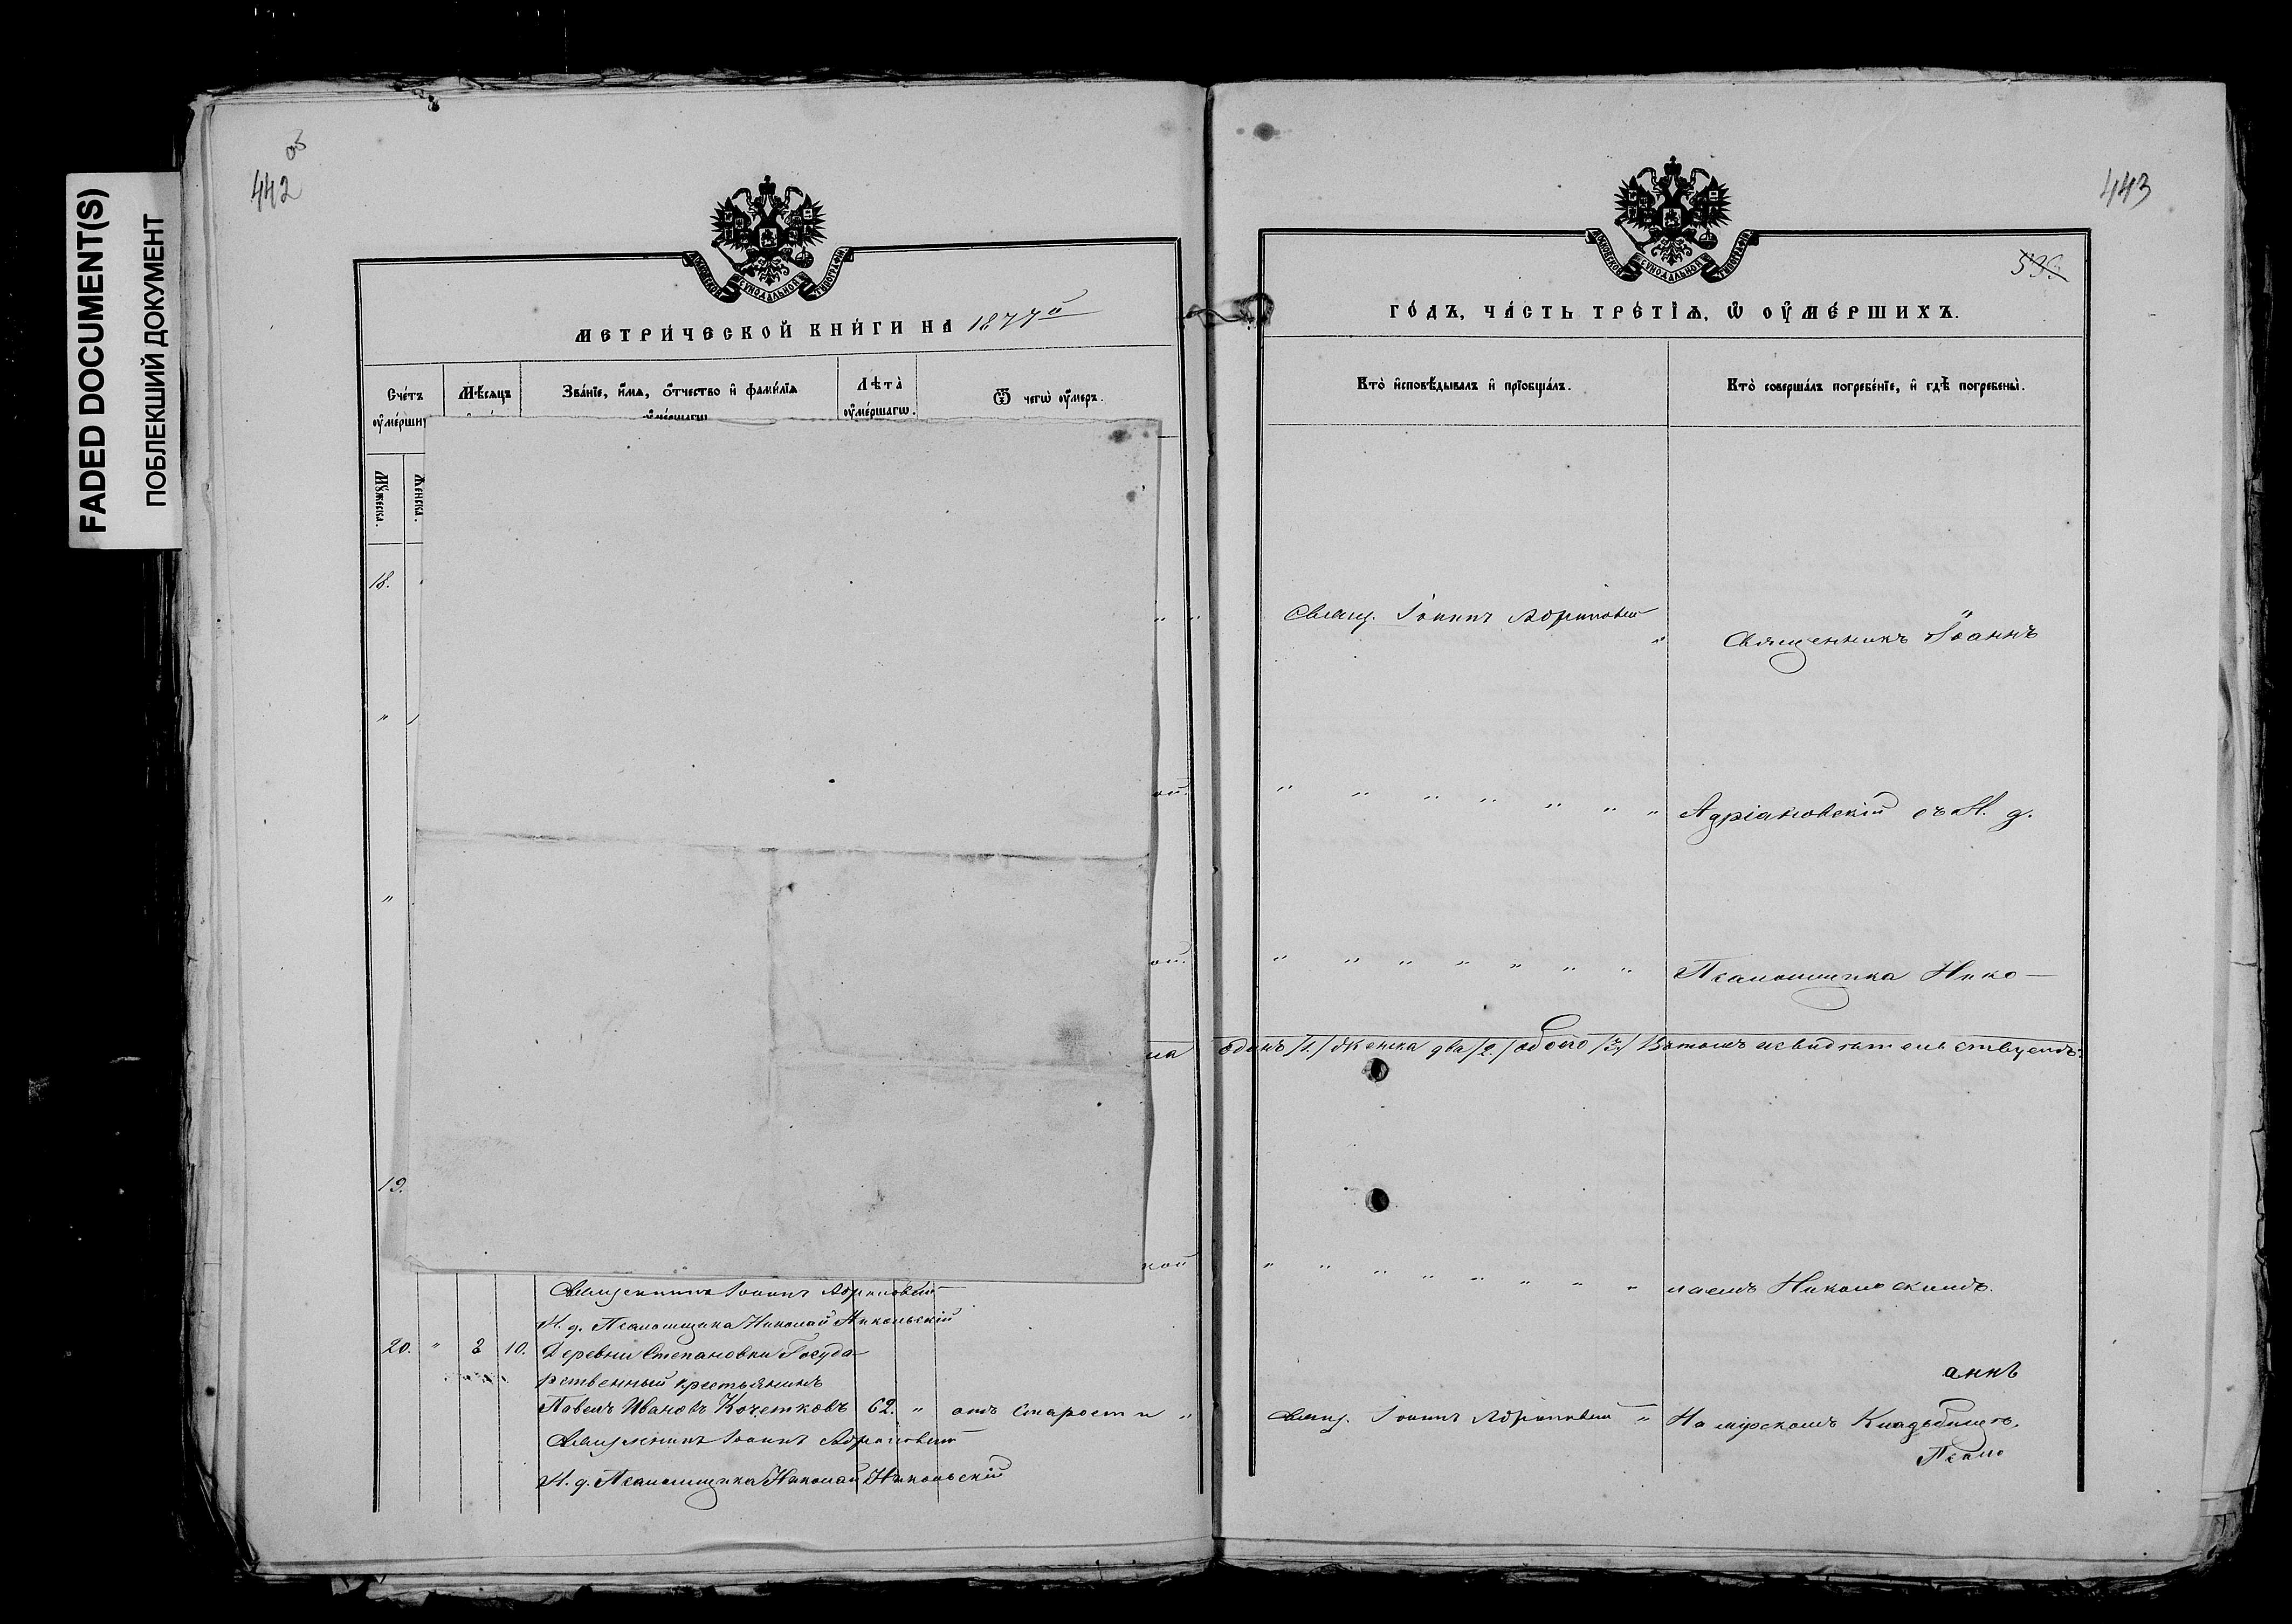 FADED DOCUMENT(S)
ПОБЛЕКШИЙ ДОКУМЕНТ
442 об
МОСКОВСКОЙ СѴНОДАЛЬНОЙ ТИПОГРАФІИ
МЕТРИ́ЧЕСКОЙ КНИ́ГИ НА 1877й
Сче́тъ оу҆ме́рши
Мѣ́сяцъ
Зва́нїе, и҆́мѧ, ѻ҆́тчество и҆ фами́лїѧ
Лѣ́та̀ оу҆ме́ршагѡ.
Ѿ чегѡ̀ оу҆́меръ.
Мꙋ́жеска.
Же́нска.
18.
"
"
ой.
ой.
19.
кой
Священникъ Іоаннъ Адріановскій
И. д. Псаломщика Николай Никольскій
20. " 2 10. Деревни Степановки Госуда-
рственный крестьянинъ
Павелъ Ивановъ Кочетковъ 62. " отъ старости "
Священникъ Іоаннъ Адріановскій
И. д. Псаломщика Николай Никольскій
443
МОСКОВСКОЙ СѴНОДАЛЬНОЙ ТИПОГРАФІИ
ГО́ДЪ, ЧА́СТЬ ТРЕ́ТЇѦ, Ѡ҆ ОУ҆МЕ́РШИХЪ.
Кто̀ и҆сповѣ́дывалъ и҆ прїобща́лъ.
Кто̀ соверша́лъ погребе́нїе, и҆ гдѣ̀ погребены̀.
Свящ. Іоаннъ Адріановскій "
Священникъ Іоаннъ
" " " " " " " Адріановскій съ И. д.
" " " " " " " Псаломщика Нико-
одинъ /1./ женска два /2./ обоего /3./ Въ томъ свидѣтельствуемъ:
" " " " " " " " лаемъ Никольскимъ.
аннъ
Свящ. Іоаннъ Адріановскій " На мірскомъ Кладбищѣ.
Псало